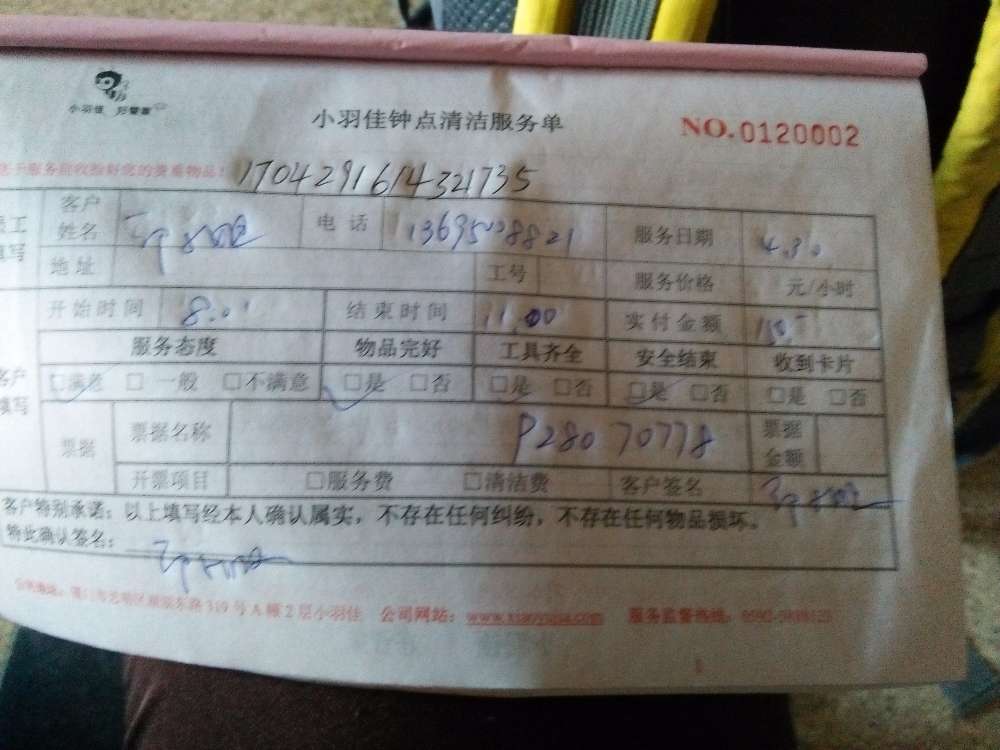 小羽佳 好管家
小羽佳钟点清洁服务单 NO.0120002
1704291614321735
客户姓名 电话 服务日期 4.30
地址 工号 服务价格 元/小时
开始时间 8.0 结束时间 11.00 实付金额
服务态度 物品完好 工具齐全 安全结束 收到卡片
□满意 □一般 □不满意 □是 □否 □是 □否 □是 □否 □是 □否
票据 票据名称 P28070778 票据金额
开票项目 □服务费 □清洁费 客户签名
客户特别承诺：以上填写经本人确认属实，不存在任何纠纷，不存在任何物品损坏。
特此确认签名：
319号A幢2层小羽佳 公司网站： 服务监督热线：
1